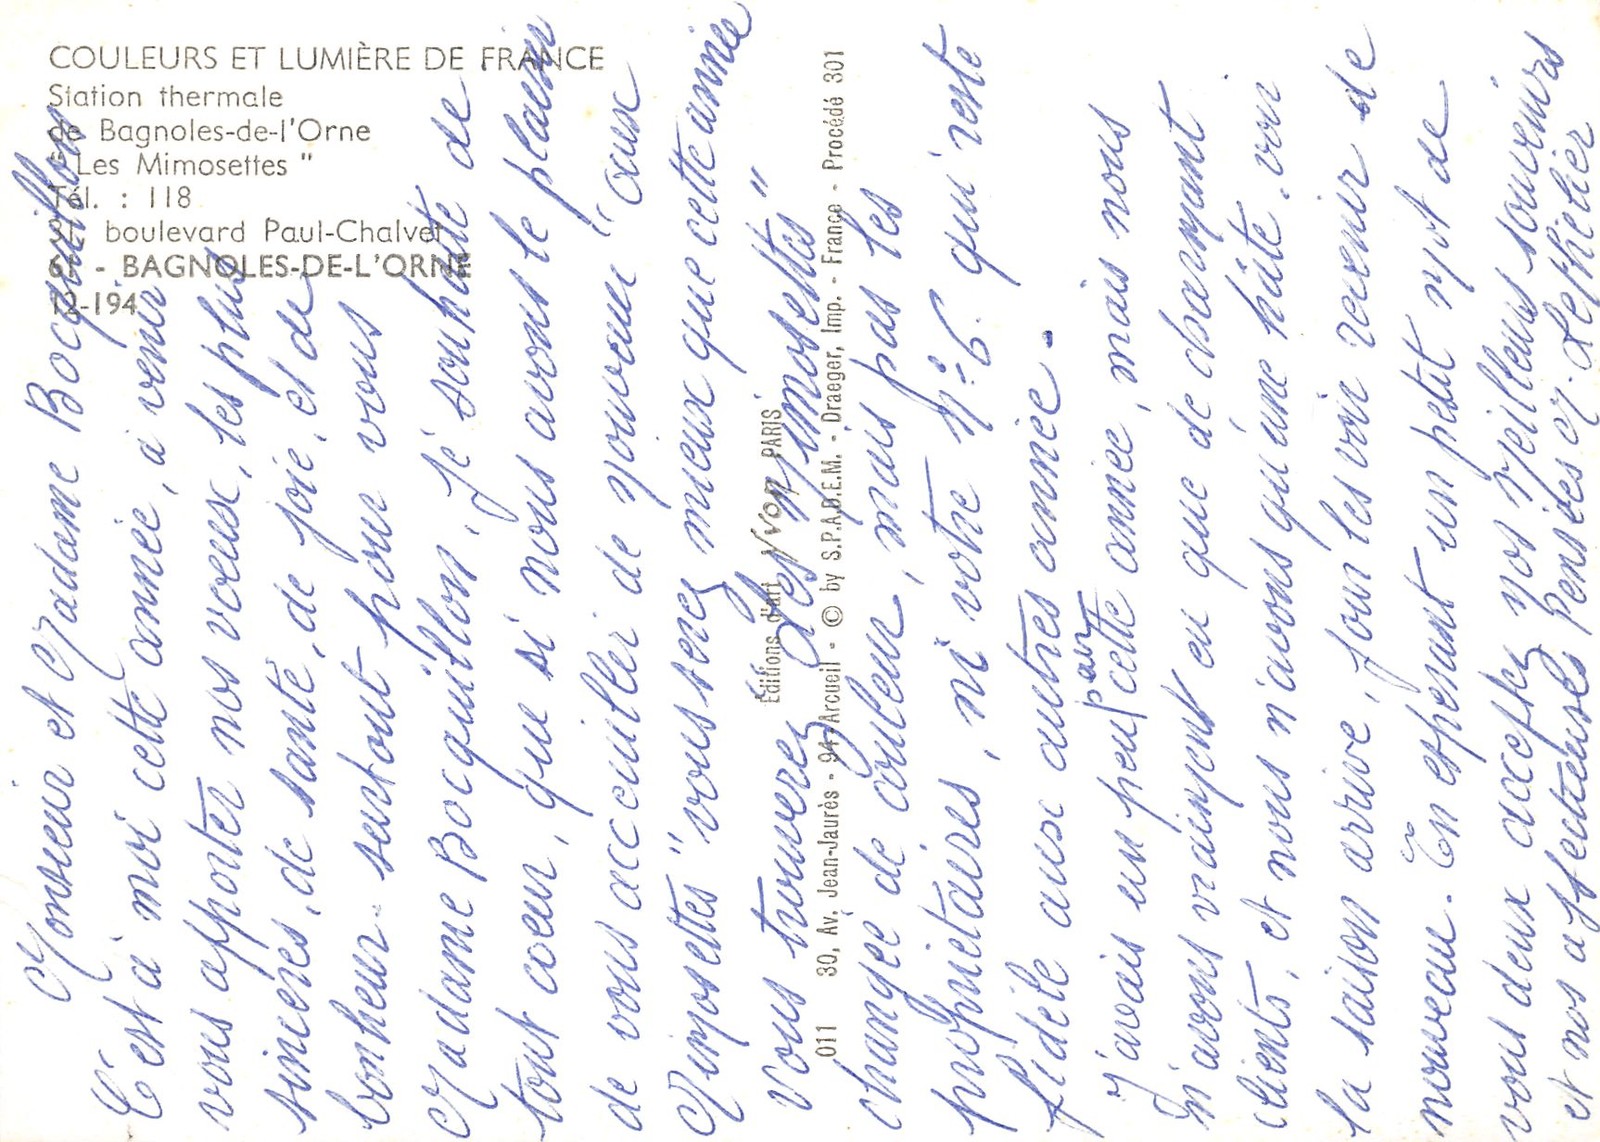 COULEURS ET LUMIÈRE DE FRANCE
Station thermale
de Bagnoles-de-l'Orne
" Les Mimosettes "
Tél. : 118
boulevard Paul-Chalvet
61 - BAGNOLES-DE-L'ORNE
12-194
Éditions d'art YVON PARIS
011 30, Av. Jean-Jaurès - 94-Arcueil - © by S.P.A.D.E.M. - Draeger, Imp. - France - Procédé 301
Monsieur et Madame Bocquillon
C'est à moi cette année, à venir
vous apporter nos voeux, les plus
sincères, de santé, de joie, et de
bonheur - surtout pour vous
Madame Bocquillon, Je souhaite de
tout coeur, que si nous avons le plaisir
de vous accueillir de nouveau "aux
Mimosettes" vous serez mieux que cette année
Vous trouverez "Les Mimosettes"
changée de couleur, mais pas les
propriétaires, ni votre N° 6. qui reste
fidèle aux autres année.
J'avais un peu par cette année, mais nous
n'avons vraiment eu que de charmant
clients, et nous n'avons qu'une hâte. voir
la saison arrive, pour les voir revenir de
nouveau. En espérant un petit mot de
vous deux acceptez nos meilleurs souvenirs
et nos affectueuses Pensées